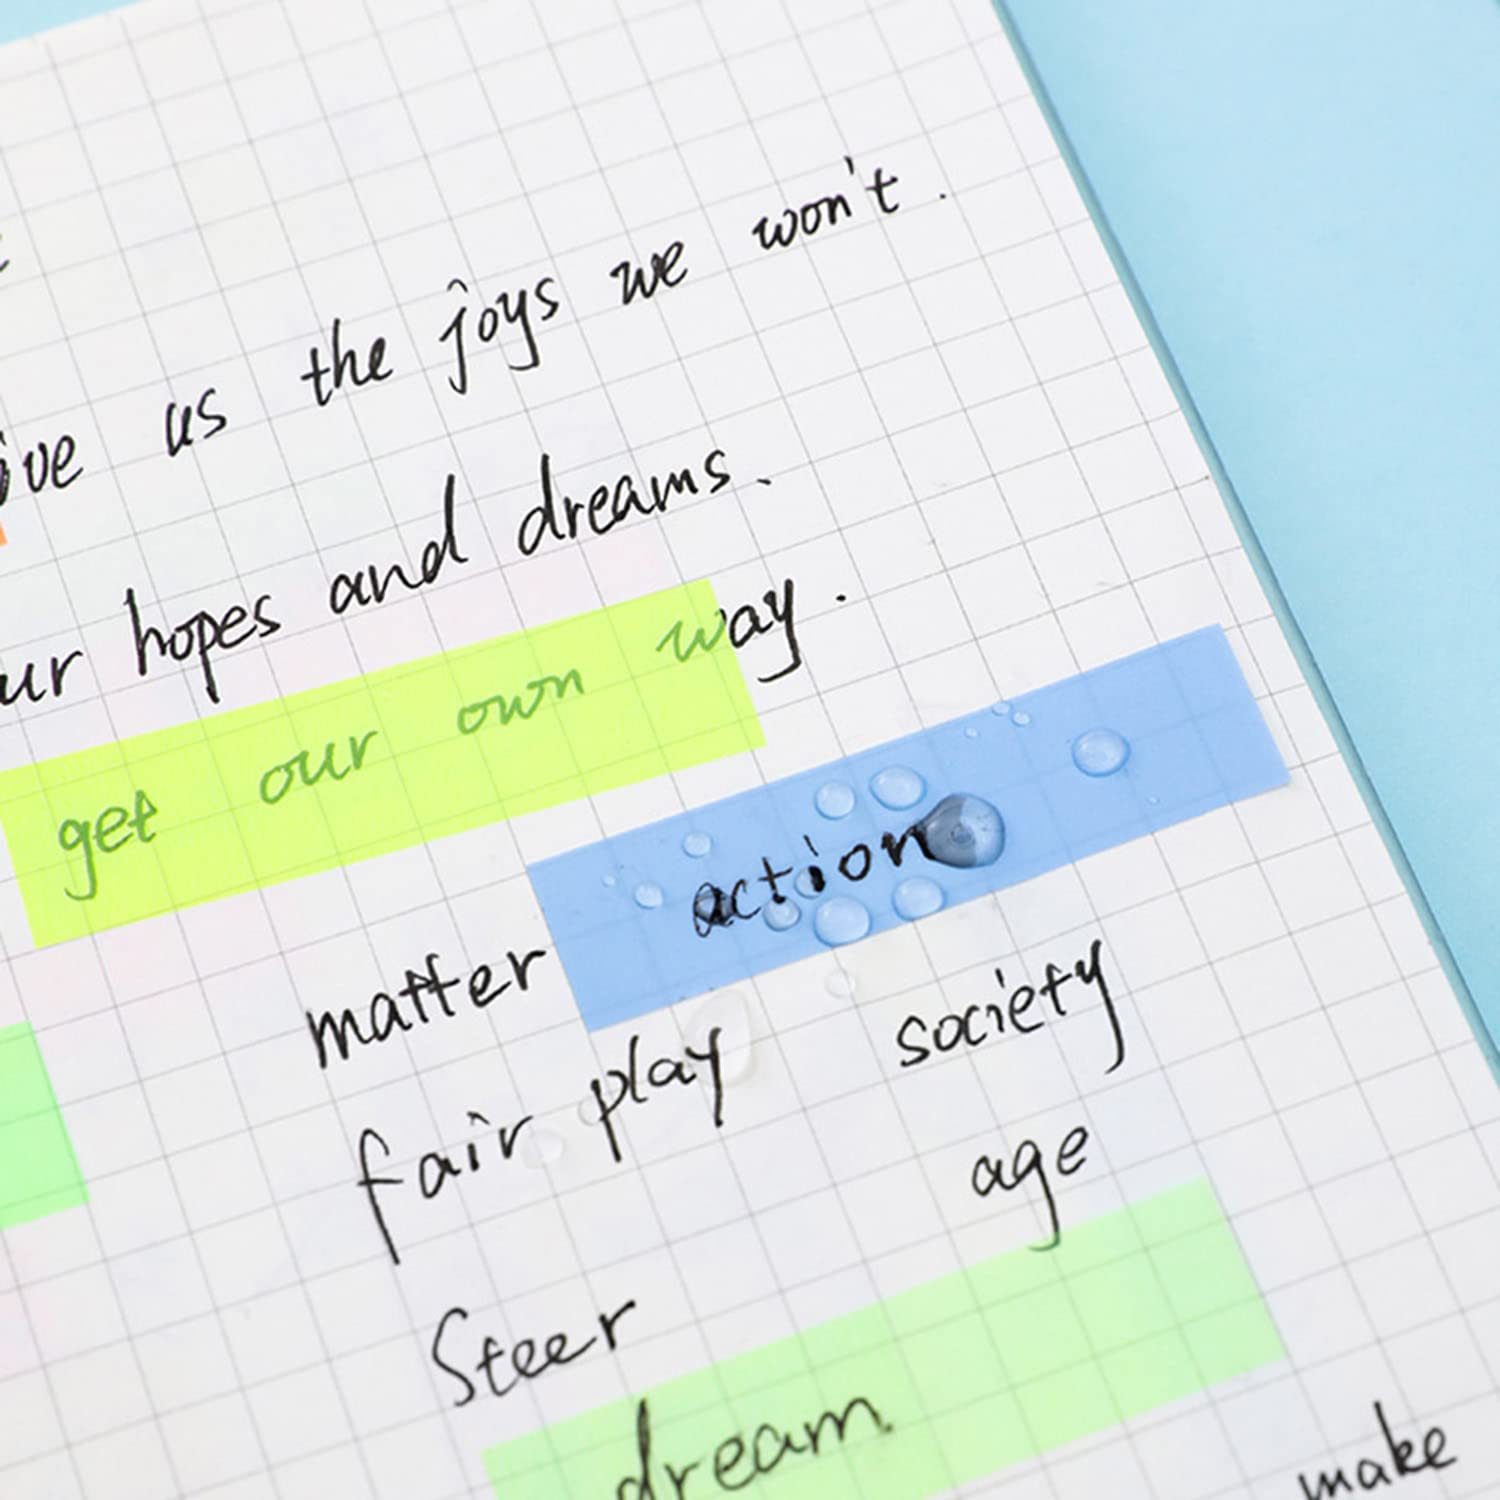 us the joys we won't.
hopes and dreams.
get our own way.
matter action
fair play society
age
Steer
dream
make